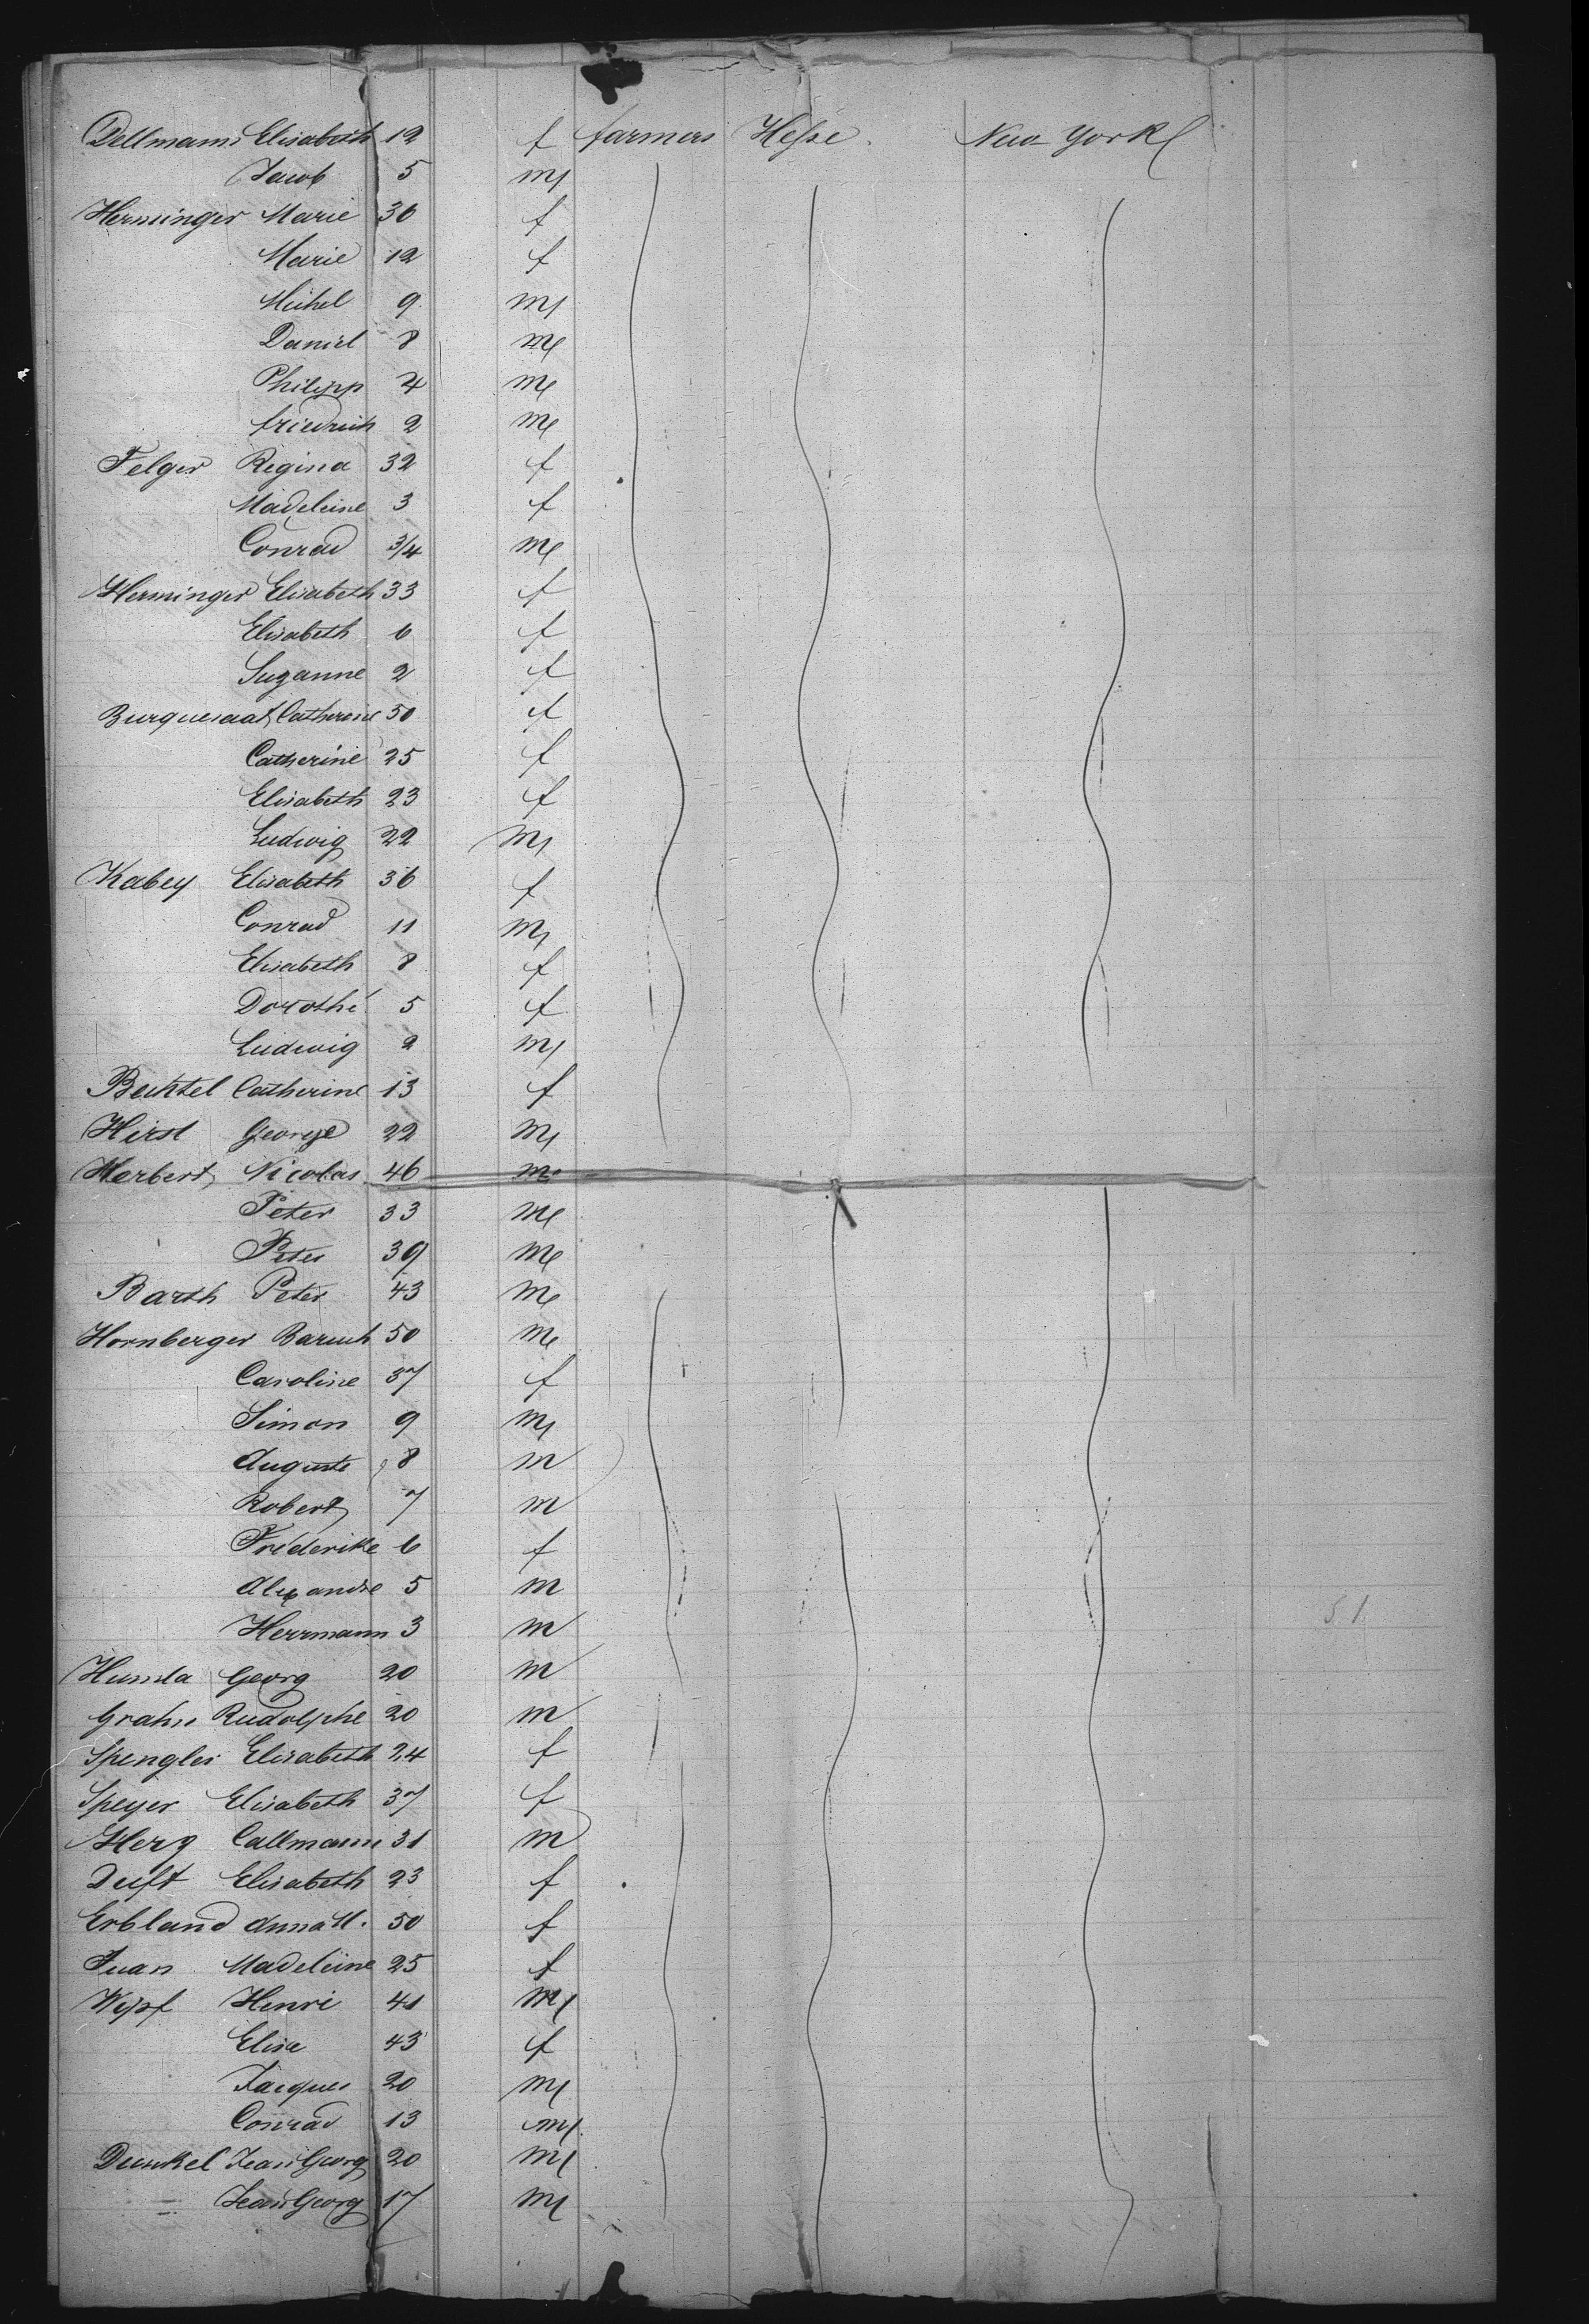 Dellmann Elisabeth 12 f farmers Hesse. New York
Jacob 5 m
Herminger Marie 36 f
Marie 12 f
Michel 9 m
Daniel 8 m
Philipp 4 m
friedrich 2 m
Felger Regina 32 f
Madeleine 3 f
Conrad 3/4 m
Herminger Elisabeth 33 f
Elisabeth 6 f
Suzanne 2 f
Catherine 50 f
Catherine 25 f
Elisabeth 23 f
Ludwig 22 m
Kabey Elisabeth 36 f
Conrad 11 m
Elisabeth 8 f
Dorothé 5 f
Ludwig 2 m
Bechtel Catherine 13 f
Hirst George 22 m
Herbert Nicolas 46 m
Peter 33 m
Peter 39 m
Barth Peter 43 m
Hornberger Baruch 50 m
Caroline 37 f
Simon 9 m
Auguste 8 m
Robert 7 m
Fréderike 6 f
Alexandre 5 m
Herrmann 3 m
Georg 20 m
Grahn Rudolphe 20 m
Spengler Elisabeth 24 f
Speyer Elisabeth 37 f
Herz Callmann 31 m
Duft Elisabeth 23 f
Erbland Anna M. 50 f
Juan Madeleine 25 f
Wipf Henri 41 m
Elise 43 f
Jacques 20 m
Conrad 13 m
Dunkel Jean Georg 20 m
Jean Georg 17 m
51